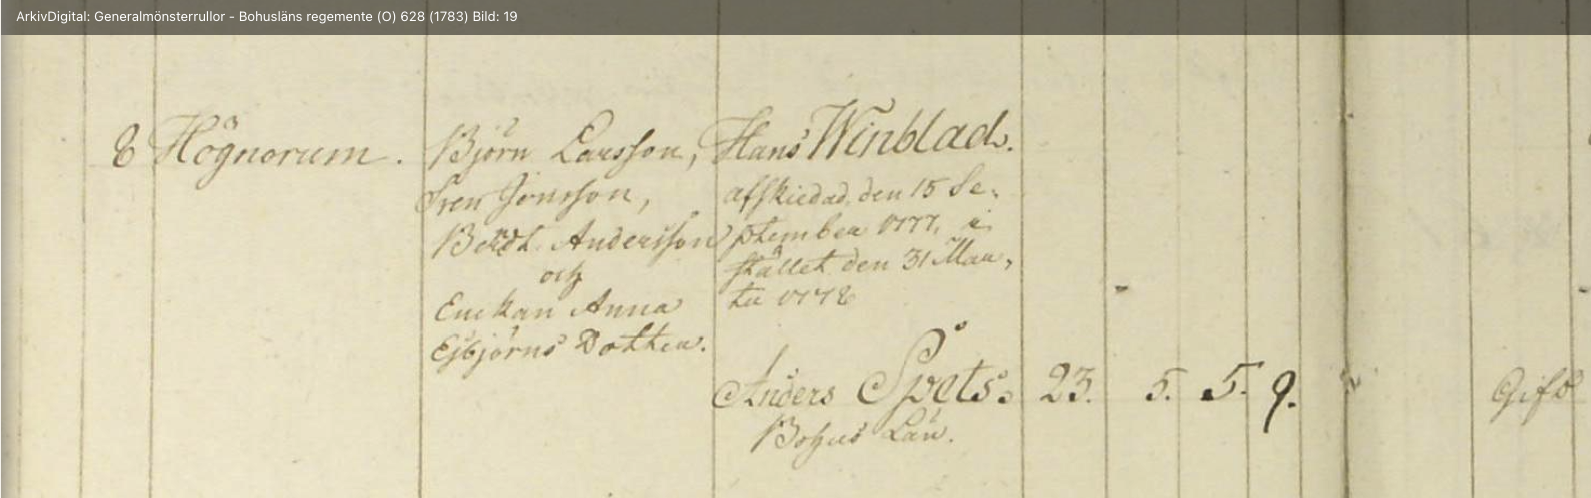 ArkivDigital: Generalmönsterrullor - Bohusläns regemente (O) 628 (1783) Bild: 19
8 Högnorum. Björn Larsson, Hans Winblad.
Sven Jönsson, afskiedad den 15 Se-
Berdt. Andersson ptember 1777, i
och stället den 31 Mar-
Enckan Anna tii 1778
Esbjörns Dotter.
Anders Spets: 23. 5. 5. 9. Gift
Bohus Län.